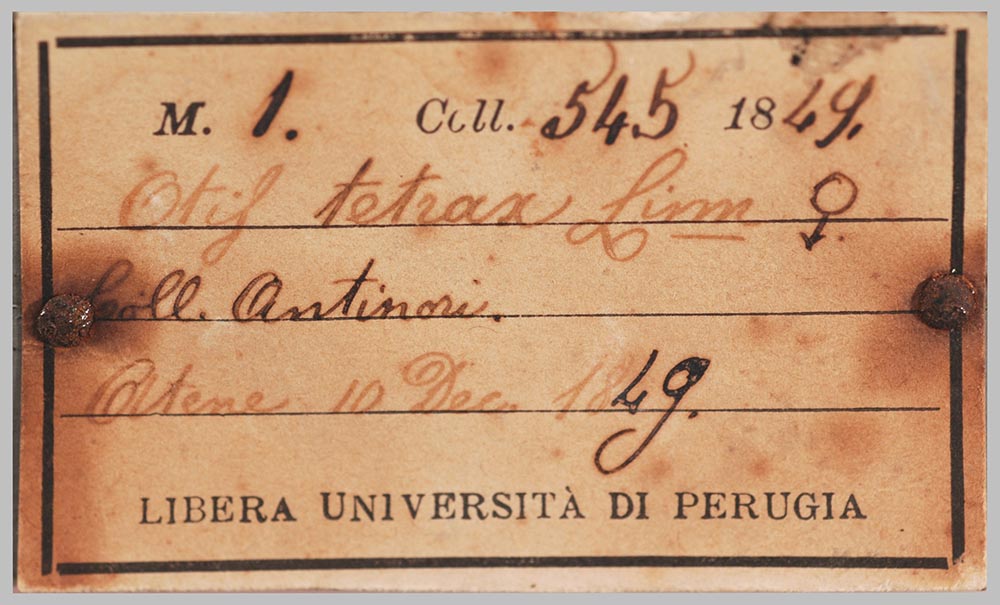 M. 1. Coll. 545 1849.
Otis tetrax Linn ♀.
Coll. Antinori.
Atene 10 Dec. 1849.
LIBERA UNIVERSITÀ DI PERUGIA